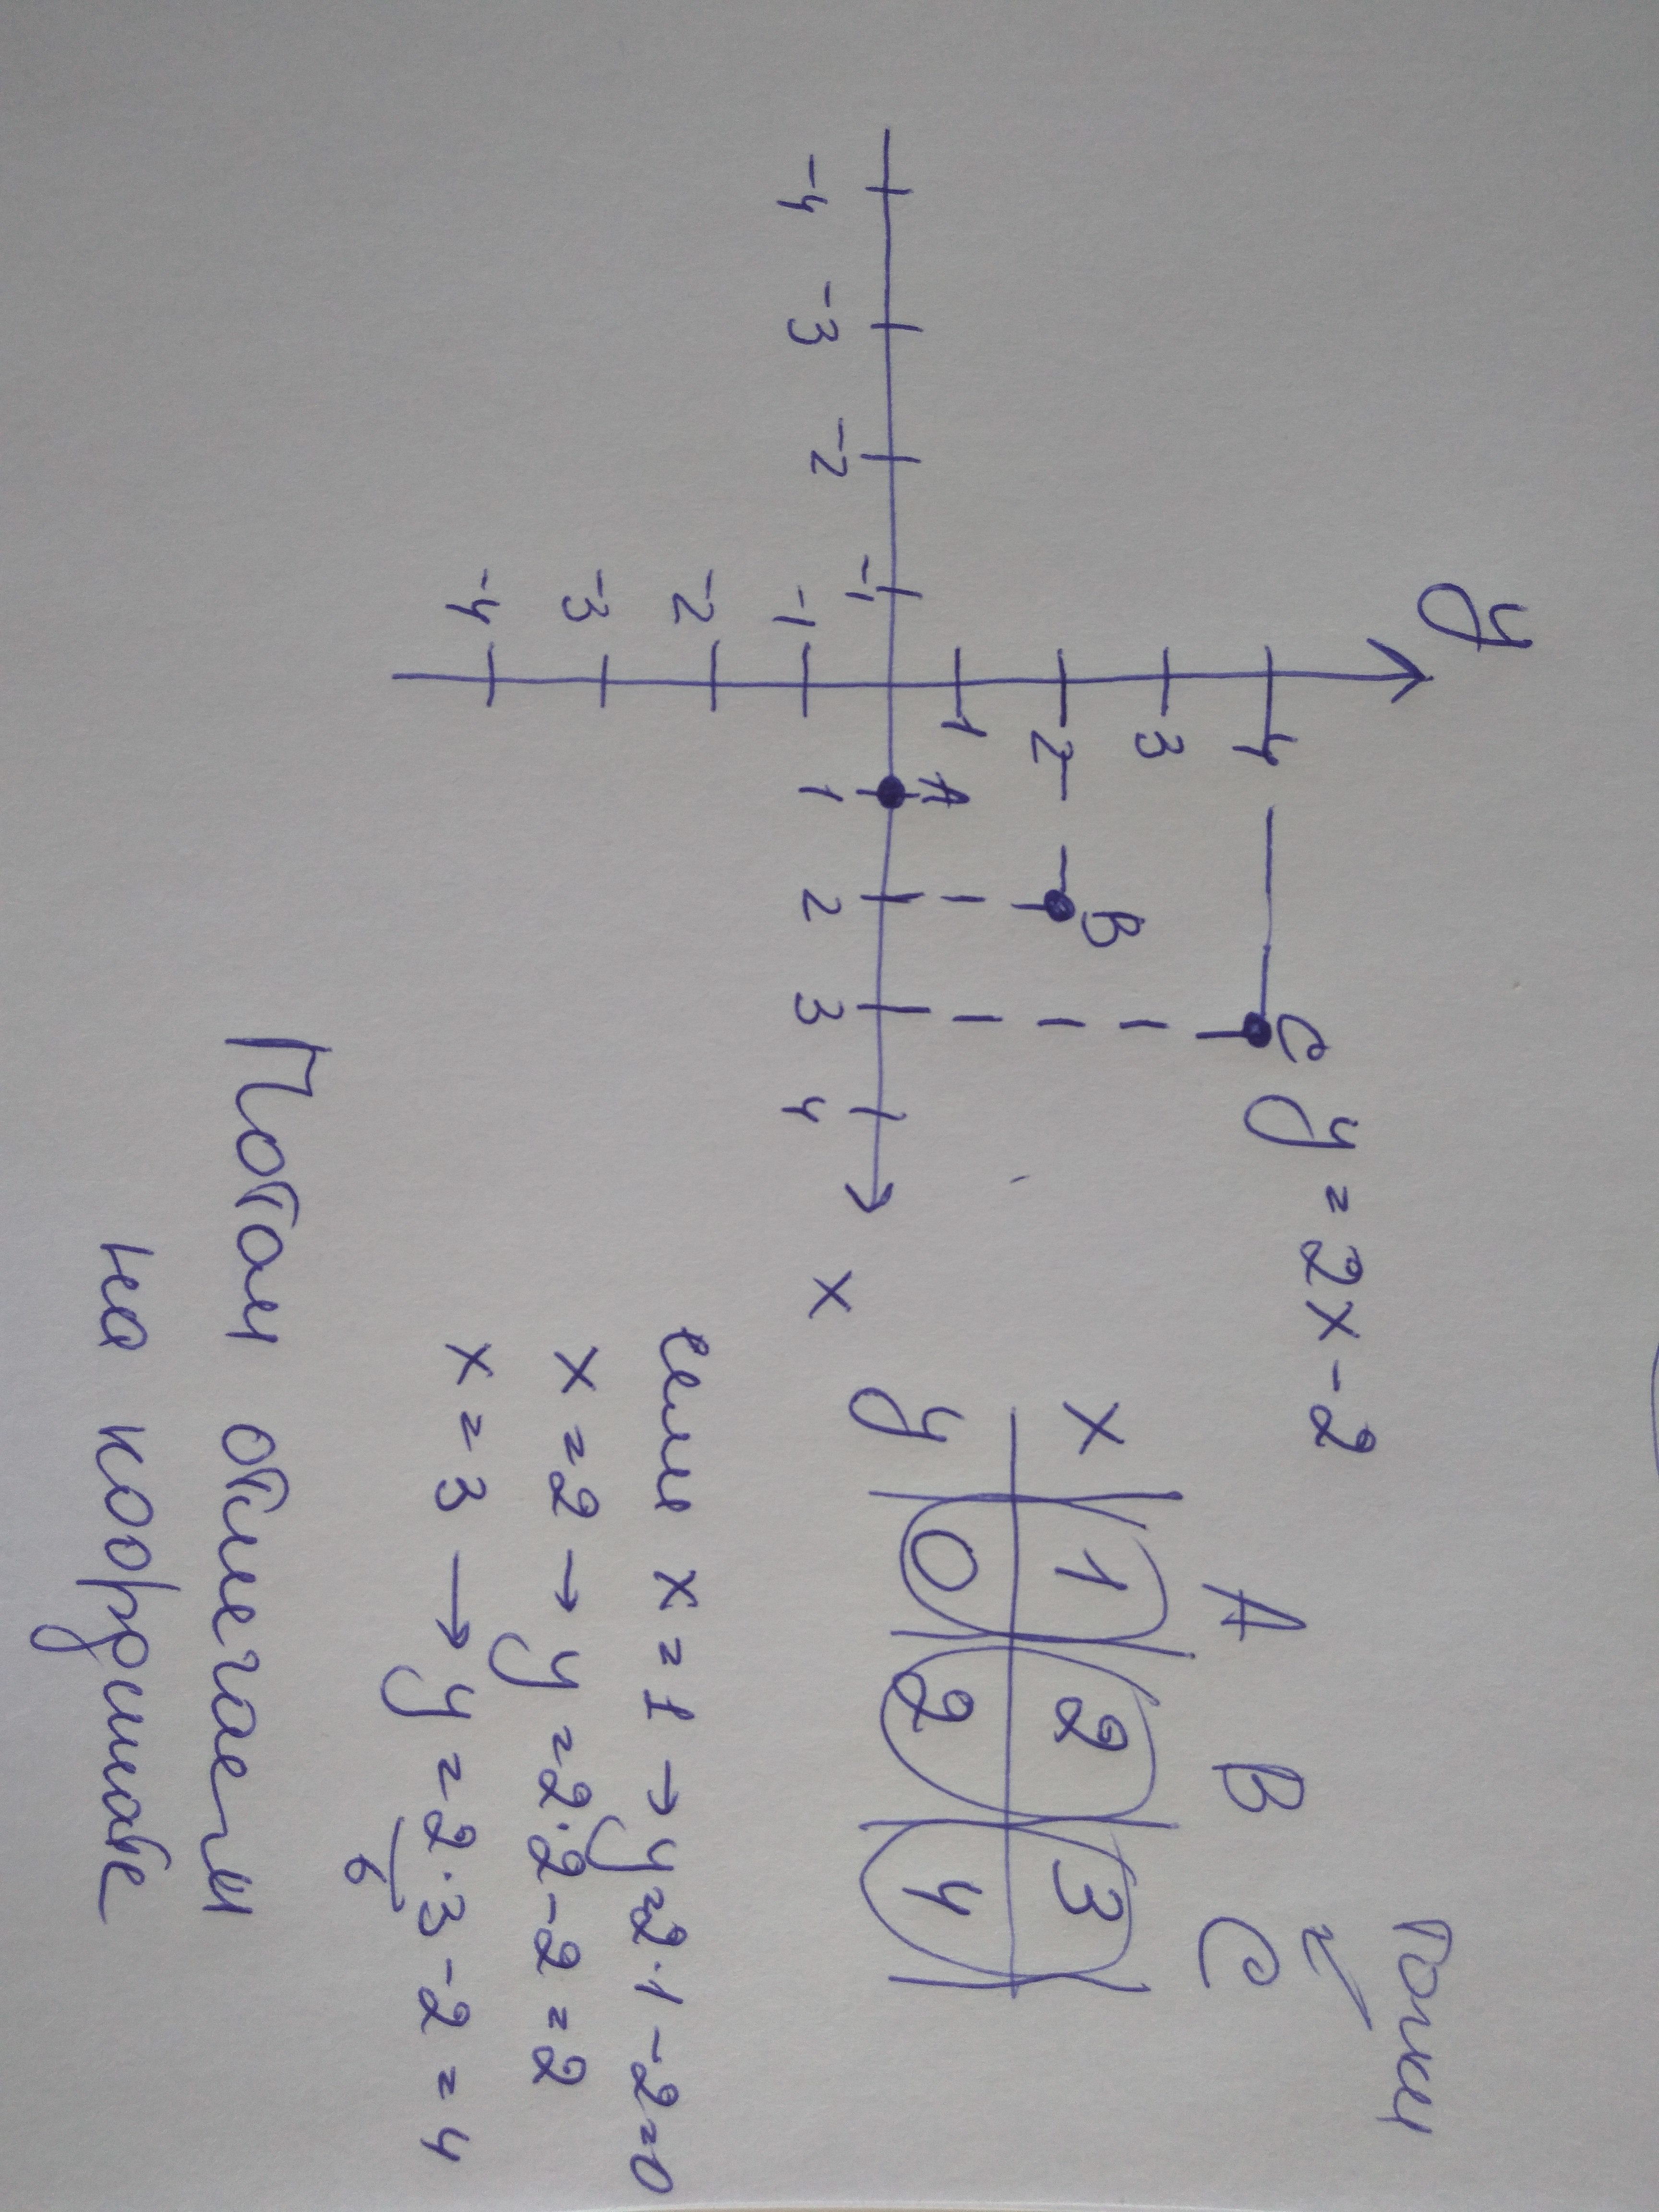 y
4
3
2
1
-1
-2
-3
-4
-4 -3 -2 -1 1 2 3 4 x
A
B
C
y = 2x - 2
точки
A B C
x 1 2 3
y 0 2 4
если x = 1 → y = 2 · 1 - 2 = 0
x = 2 → y = 2 · 2 - 2 = 2
x = 3 → y = 2 · 3 - 2 = 4
6
Потом отмечаем
на координате